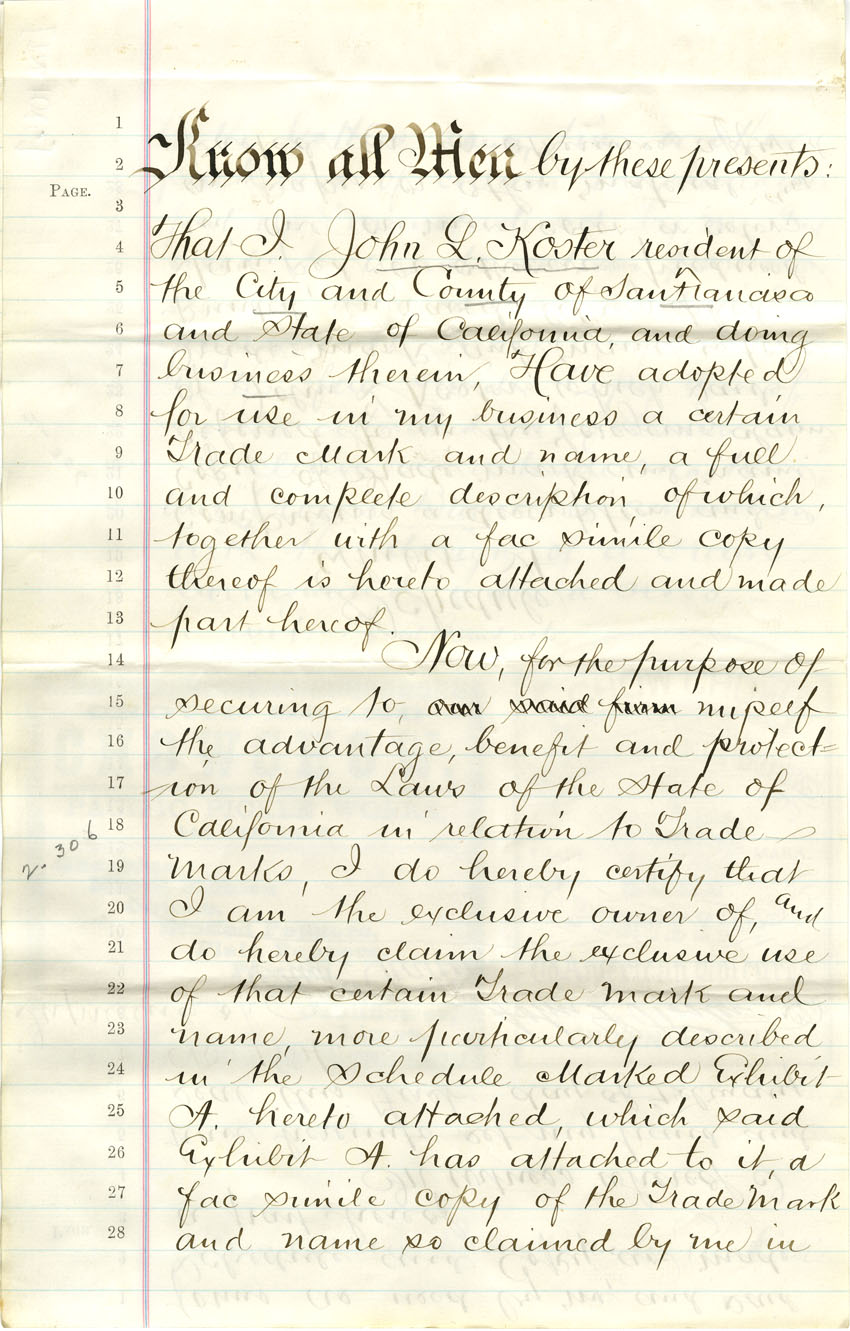 1
Know all Men by these presents:
2
PAGE.
3
4 That I. John L. Koster resident of
5 the City and County of San Francisco
6 and State of California, and doing
7 business therein, Have adopted
8 for use in my business a certain
9 Trade Mark and name, a full
10 and complete description of which,
11 together with a fac simile copy
12 thereof is hereto attached and made
13 part hereof.
14 Now, for the purpose of
15 securing to, our said firm myself
16 the advantage, benefit and protect=
17 ion of the Laws of the State of
18 California in relation to Trade
2. 306
19 Marks, I do hereby certify that
20 I am the exclusive owner of, and
21 do hereby claim the exclusive use
22 of that certain Trade Mark and
23 name, more particularly described
24 in the Schedule Marked Exhibit
25 A. hereto attached, which said
26 Exhibit A. has attached to it, a
27 fac simile copy of the Trade Mark
28 and name so claimed by me in